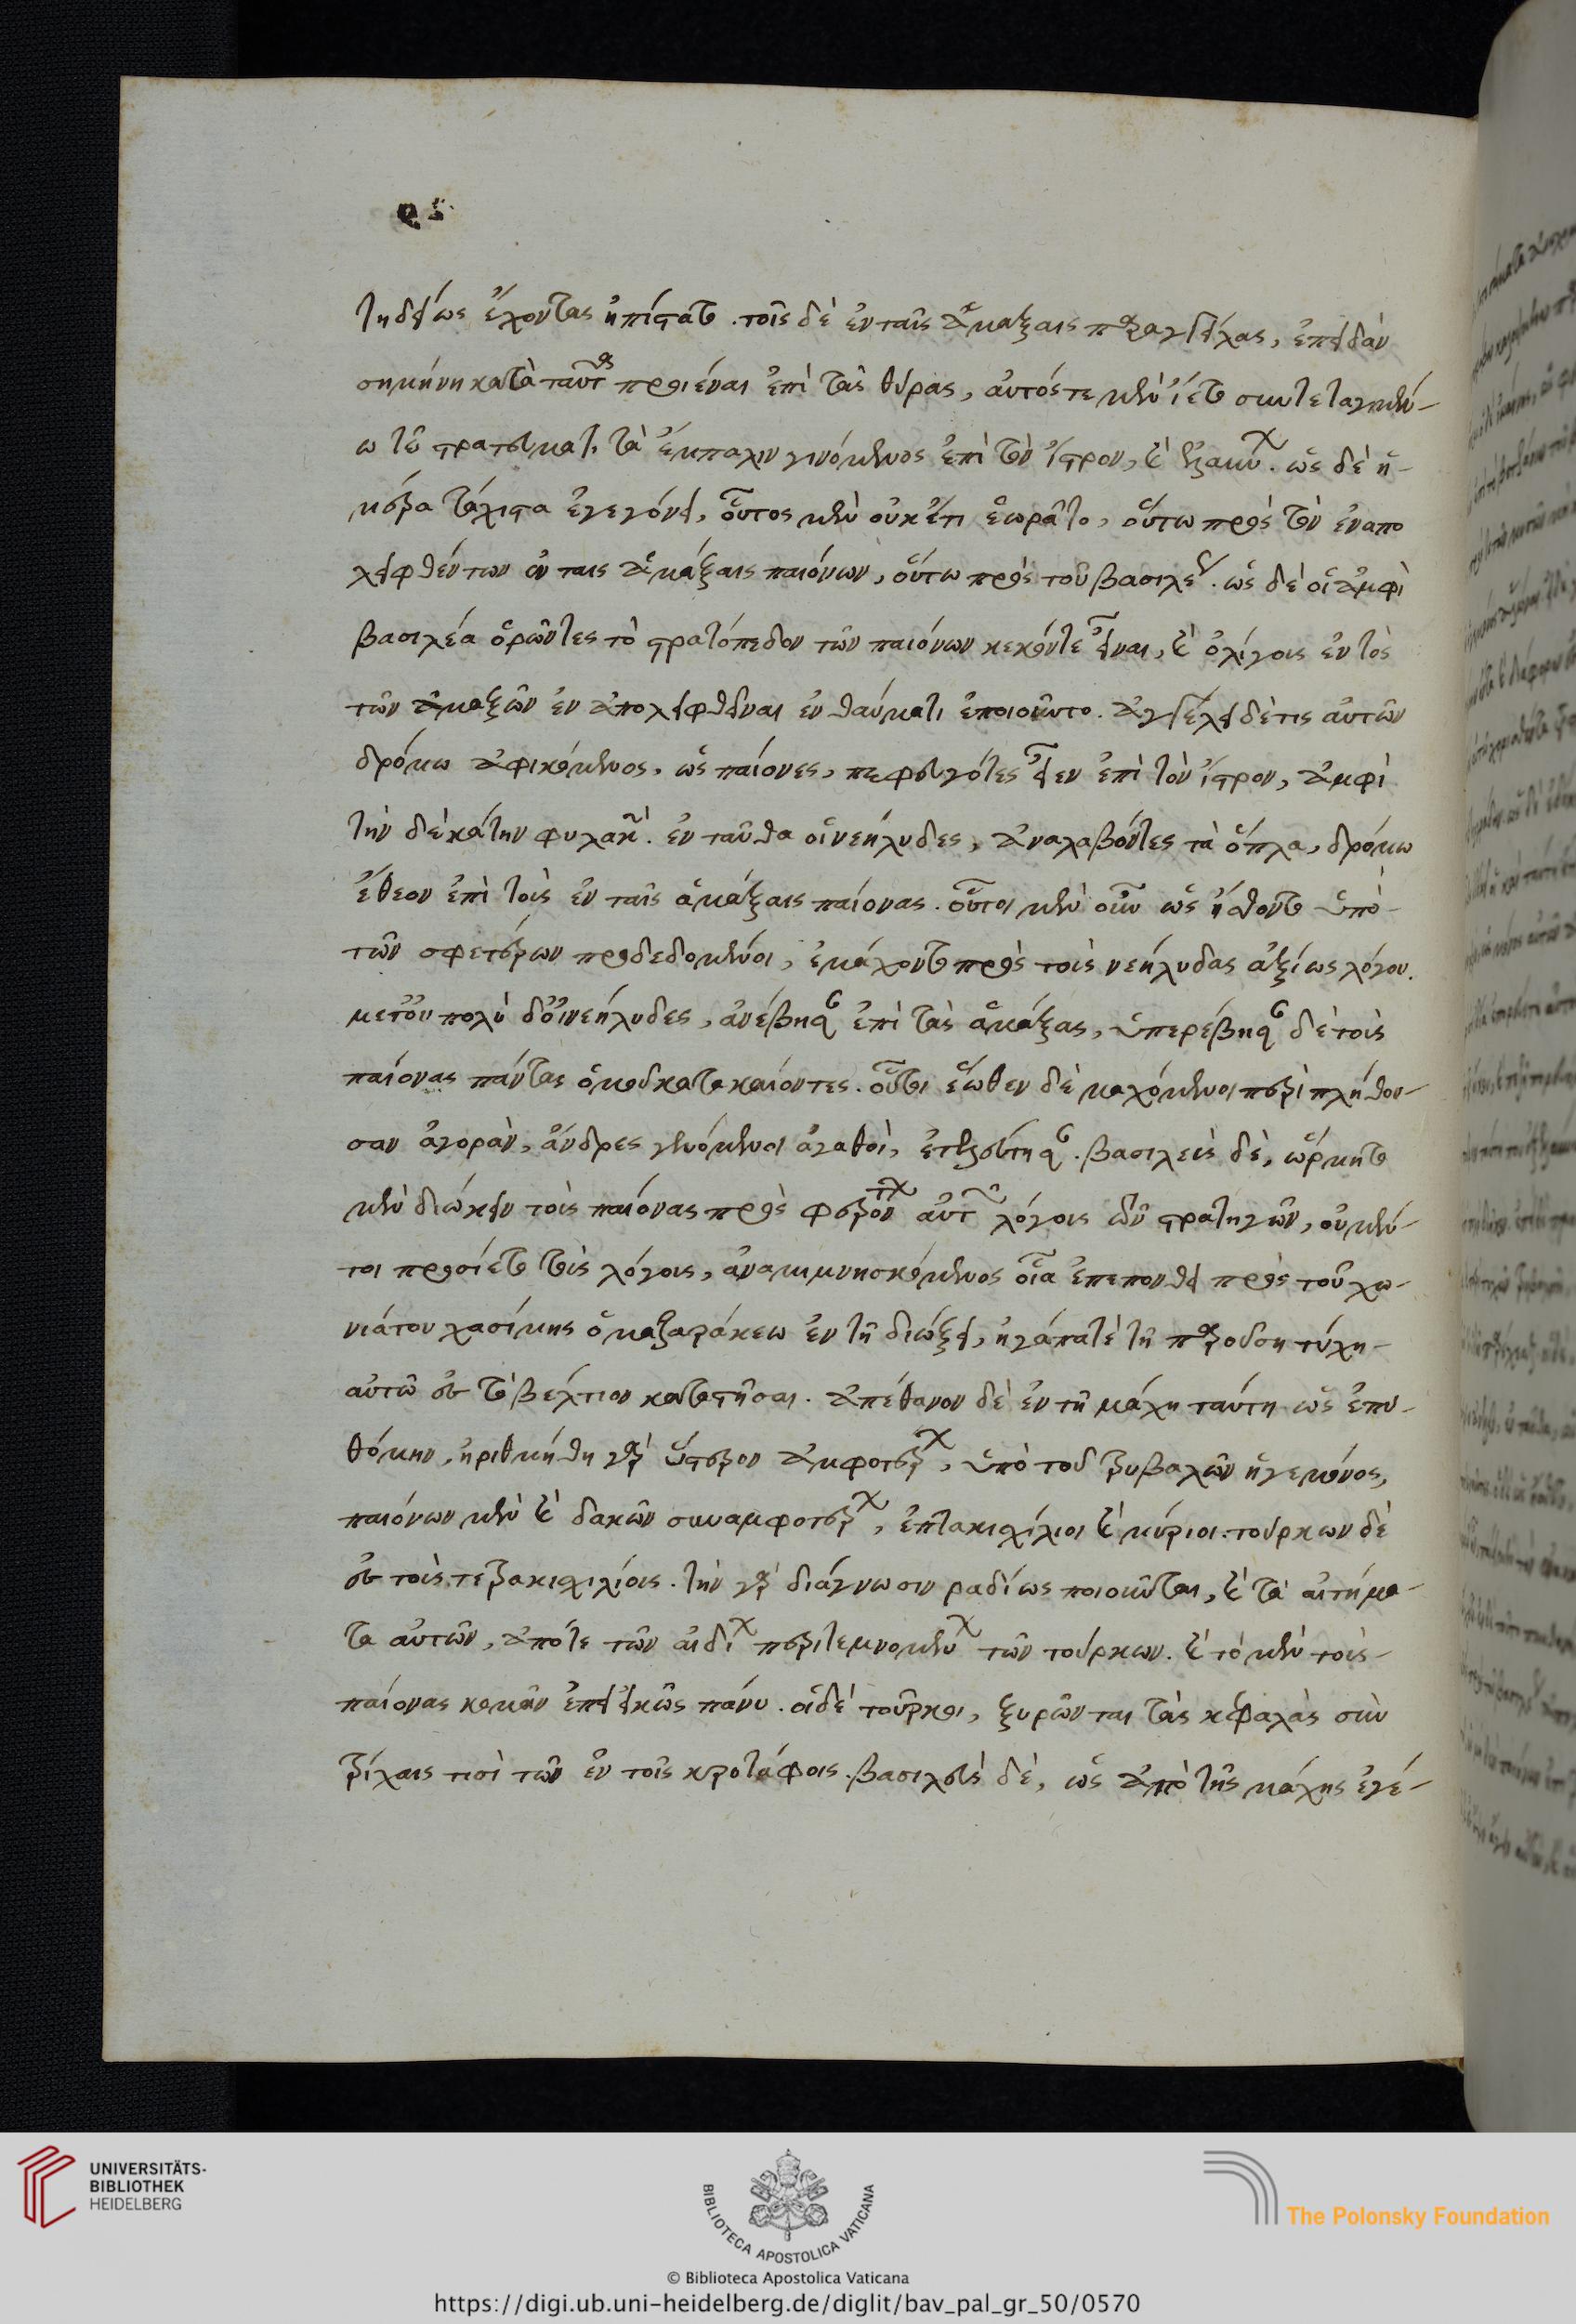 τηδείως ἔχοντας ἠπίστατο. τοῖς δὲ ἐν ταῖς ἁμάξαις παραγγείλας, ἐπειδὰν
σημήνη κατὰ ταυτ προϊέναι ἐπὶ τὰς θύρας, αὐτός τε μὲν ἵετο συντεταγμέν-
ω τῶ στρατεύματι τὰ ἔμπαλιν γινόμενος ἐπὶ τὸν ἴστρον, καὶ ὡς δὲ ἡ-
μέρα τάχιστα ἐγεγόνει, οὗτος μὲν οὐκέτι ἑωρᾶτο, οὕτω πρὸς τῶν ἐναπο
λειφθέντων ἐν ταις ἁμάξαις παιόνων, οὕτω πρὸς τοῦ βασιλέως. ὡς δὲ οἱ ἀμφὶ
βασιλέα ὁρῶντες τὸ στρατόπεδον τῶν παιόνων εἶναι, καὶ ὀλίγοις ἐντὸς
τῶν ἁμαξῶν ἐναπολειφθῆναι ἐν θαύματι ἐποιοῦντο. ἀγγέλει δέ τις αὐτῶν
δρόμω ἀφικόμενος, ὡς παίονες, πεφευγότες εἶεν ἐπὶ τὸν ἴστρον, ἀμφὶ
τὴν δεκάτην φυλακήν. ἐνταῦθα οἱ νεήλυδες, ἀναλαβόντες τὰ ὅπλα, δρόμω
ἔθεον ἐπὶ τοὺς ἐν ταῖς ἁμάξαις παίονας. οὗτοι μὲν οὖν ὡς ἤσθοντο ὑπὸ
τῶν σφετέρων προδεδομένοι, ἐμάχοντο πρὸς τοὺς νεήλυδας ἀξίως λόγου.
μετ' οὐ πολὺ δ' οἱ νεήλυδες, ἀνέβησαν ἐπὶ τὰς ἁμάξας, ὑπερέβησαν δὲ τοὺς
παίονας πάντας ὁμοῦ κατακαίοντες. οὗτοι ἕωθεν δὲ μαχόμενοι περὶ πλήθου-
σαν ἀγορὰν, ἄνδρες γενόμενοι ἀγαθοὶ, ἐτελεύτησαν. βασιλεὺς δὲ, ὥρμητο
μὲν διώκειν τοὺς παίονας πρὸς λόγοις τῶν στρατηγῶν, οὐ μέν-
τοι προσίετο τοὺς λόγους, ἀναμιμνησκόμενος οἷα ἐπεπόνθει πρὸς τοῦ χω-
νιάτου χασίμης ὁ μαζαράκεω ἐν τῆ διώξει, ἠγάπα τὲ τῆ παρούση τύχη
αὐτῶ ἐς τὸ βέλτιον καταστῆσαι. ἀπέθανον δὲ ἐν τῆ μάχη ταύτη ὡς ἐπυ-
θόμην, ἠριθμήθη γὰρ ὕστερον ἀμφοτέρων, ὑπὸ τοῦ τριβαλῶν ἡγεμόνος,
παιόνων μὲν καὶ δακῶν συναμφοτέρων, ἑπτακισχίλιοι καὶ μύριοι. τούρκων δὲ
ἐς τοὺς τετρακισχιλίους. τὴν γὰρ διάγνωσιν ραδίως ποιοῦνται, καὶ τὰ αἰτήμα-
τα αὐτῶν, ἀπό τε τῶν αἰδίων περιτεμνομένων τῶν τούρκων. καὶ τὸ μὲν τοὺς
παίονας κομᾶν ἐπιεικῶς πάνυ. οἱ δὲ τοῦρκοι, ξυρῶνται τὰς κεφαλὰς σὺν
τρίχαις τισὶ τῶν ἐν τοῖς κροτάφοις. βασιλεὺς δὲ, ὡς ἀπὸ τῆς μάχης ἐγέ-
UNIVERSITÄTS-
BIBLIOTHEK
HEIDELBERG
BIBLIOTECA APOSTOLICA VATICANA
The Polonsky Foundation
© Biblioteca Apostolica Vaticana
https://digi.ub.uni-heidelberg.de/diglit/bav_pal_gr_50/0570